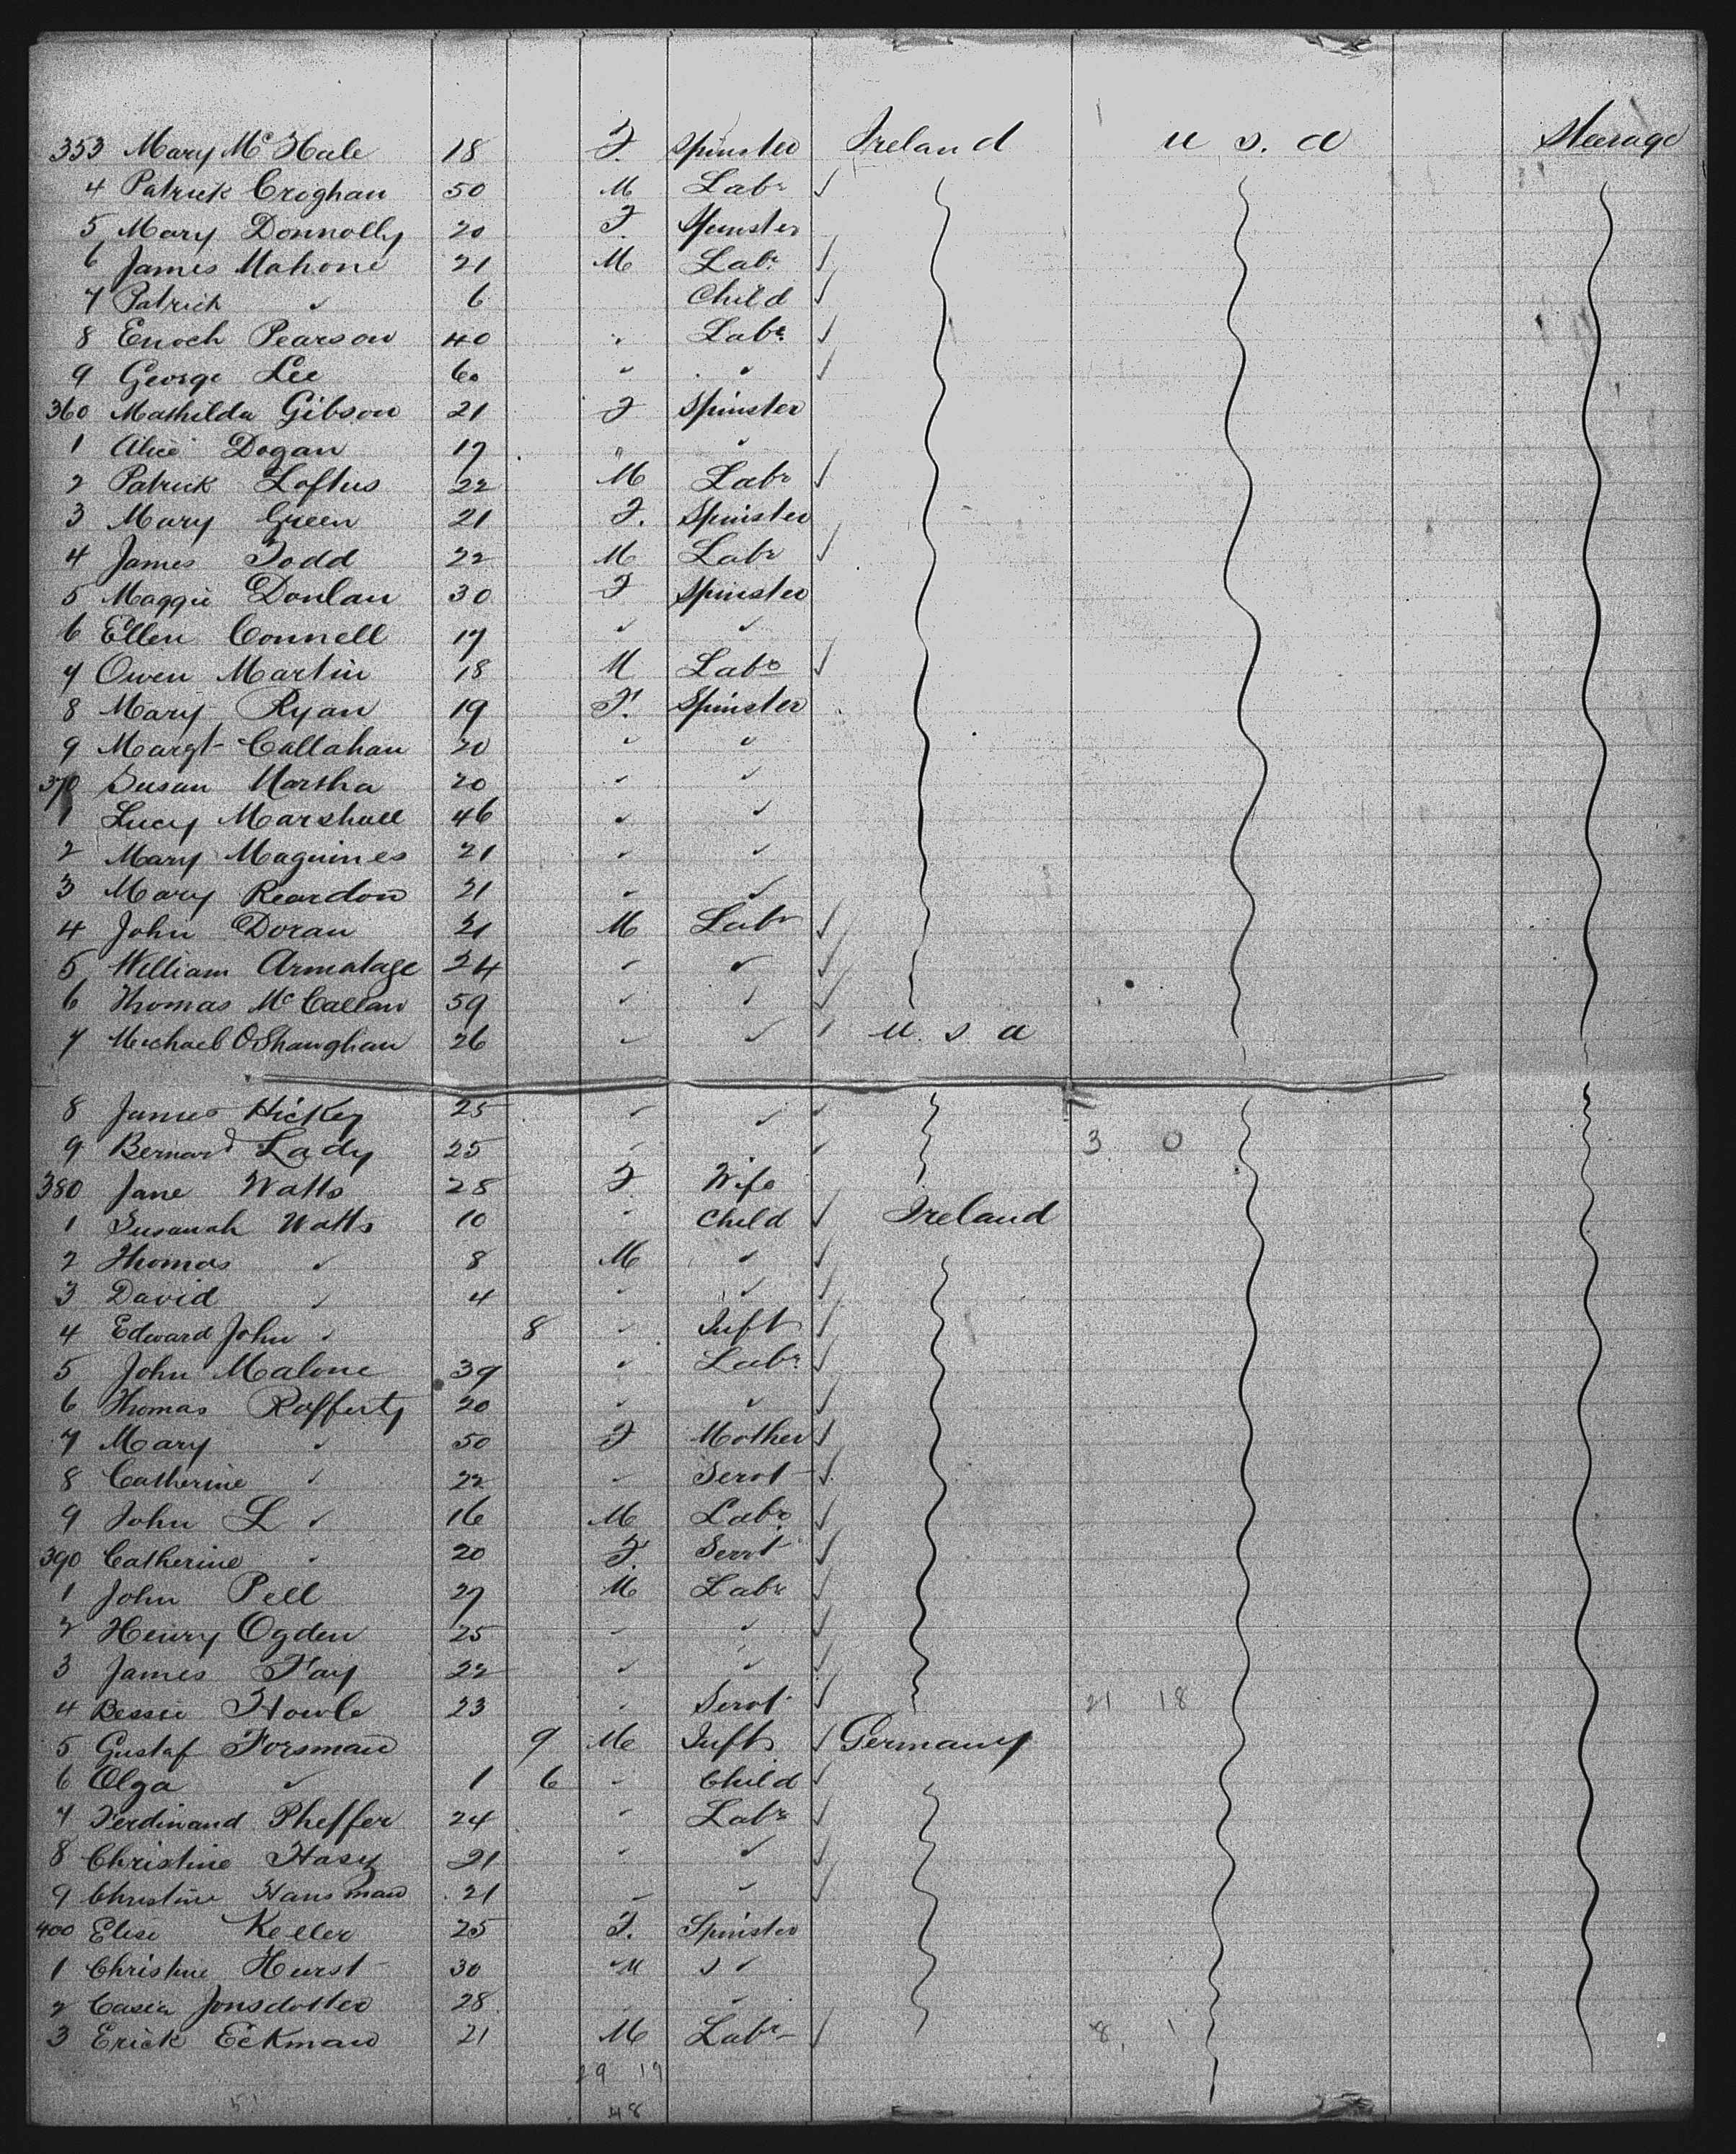 353 Mary McHale 18 F. Spinster Ireland U. S. A Steerage
4 Patrick Croghan 50 M Labr ✓
5 Mary Donnolly 20 F. Spinster
6 James Mahone 21 M Labr ✓
7 Patrick ✓ 6 Child ✓
8 Enoch Pearson 40 " Labr ✓
9 George Lee 60 " " ✓
360 Mathilda Gibson 21 F Spinster
1 Alice Dogan 17 " "
2 Patrick Loftus 22 M Labr ✓
3 Mary Green 21 F. Spinster
4 James Todd 22 M Labr ✓
5 Maggie Donlan 30 F Spinster
6 Ellen Connell 17 ✓ ✓
7 Owen Martin 18 M Labr ✓
8 Mary Ryan 19 F. Spinster
9 Margt Callahan 20 ✓ ✓
370 Susan Martha 20 ✓ ✓
1 Lucy Marshall 46 ✓ ✓
2 Mary Maguines 21 ✓ ✓
3 Mary Reardon 21 ✓ ✓
4 John Doran 21 M Labr ✓
5 William Armatage 24 ✓ ✓ ✓
6 Thomas McCallan 59 ✓ ✓ ✓
7 Michael OShanghan 26 ✓ ✓ ✓ U. S. A
8 James Hickey 25 ✓ ✓ ✓
9 Bernard Lady 25 ✓ ✓ 3 0
380 Jane Watts 28 F Wife
1 Susanah Watts 10 " Child ✓ Ireland
2 Thomas ✓ 8 M ✓ ✓
3 David ✓ 4 ✓ ✓ ✓
4 Edward John ✓ 8 ✓ Inft ✓
5 John Malone 39 ✓ Labr ✓
6 Thomas Rafferty 20 ✓ ✓ ✓
7 Mary ✓ 50 F Mother ✓
8 Catherine ✓ 22 ✓ Servt ✓
9 John L ✓ 16 M Labr ✓
390 Catherine ✓ 20 F. Servt ✓
1 John Pell 27 M Labr ✓
2 Henry Ogden 25 ✓ ✓ ✓
3 James Fay 22 ✓ ✓ ✓
4 Bessie Howle 23 ✓ Servt ✓ 21 18
5 Gustaf Forsman 9 M Inft ✓ Germany
6 Olga ✓ 1 6 ✓ Child ✓
7 Ferdinand Pheffer 24 ✓ Labr ✓
8 Christine Hasy 21 ✓ ✓ ✓
9 Christine Hansman 21 ✓ ✓ ✓
400 Elise Keller 25 F. Spinster
1 Christine Hurst 30 M ✓ ✓
2 Casia Jonsdotter 28 ✓
3 Erick Eckman 21 M Labr ✓ 8 1
29 19
51 48